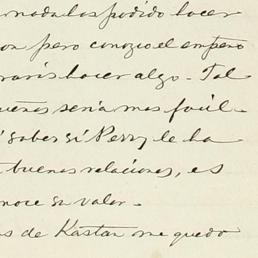 nada has podido hacer
pero conozco el empeño
hacer algo. Tal
seria mas facil
saber si Perry le ha
buenas relaciones, es
noce su valor.
de Kastan me quedo